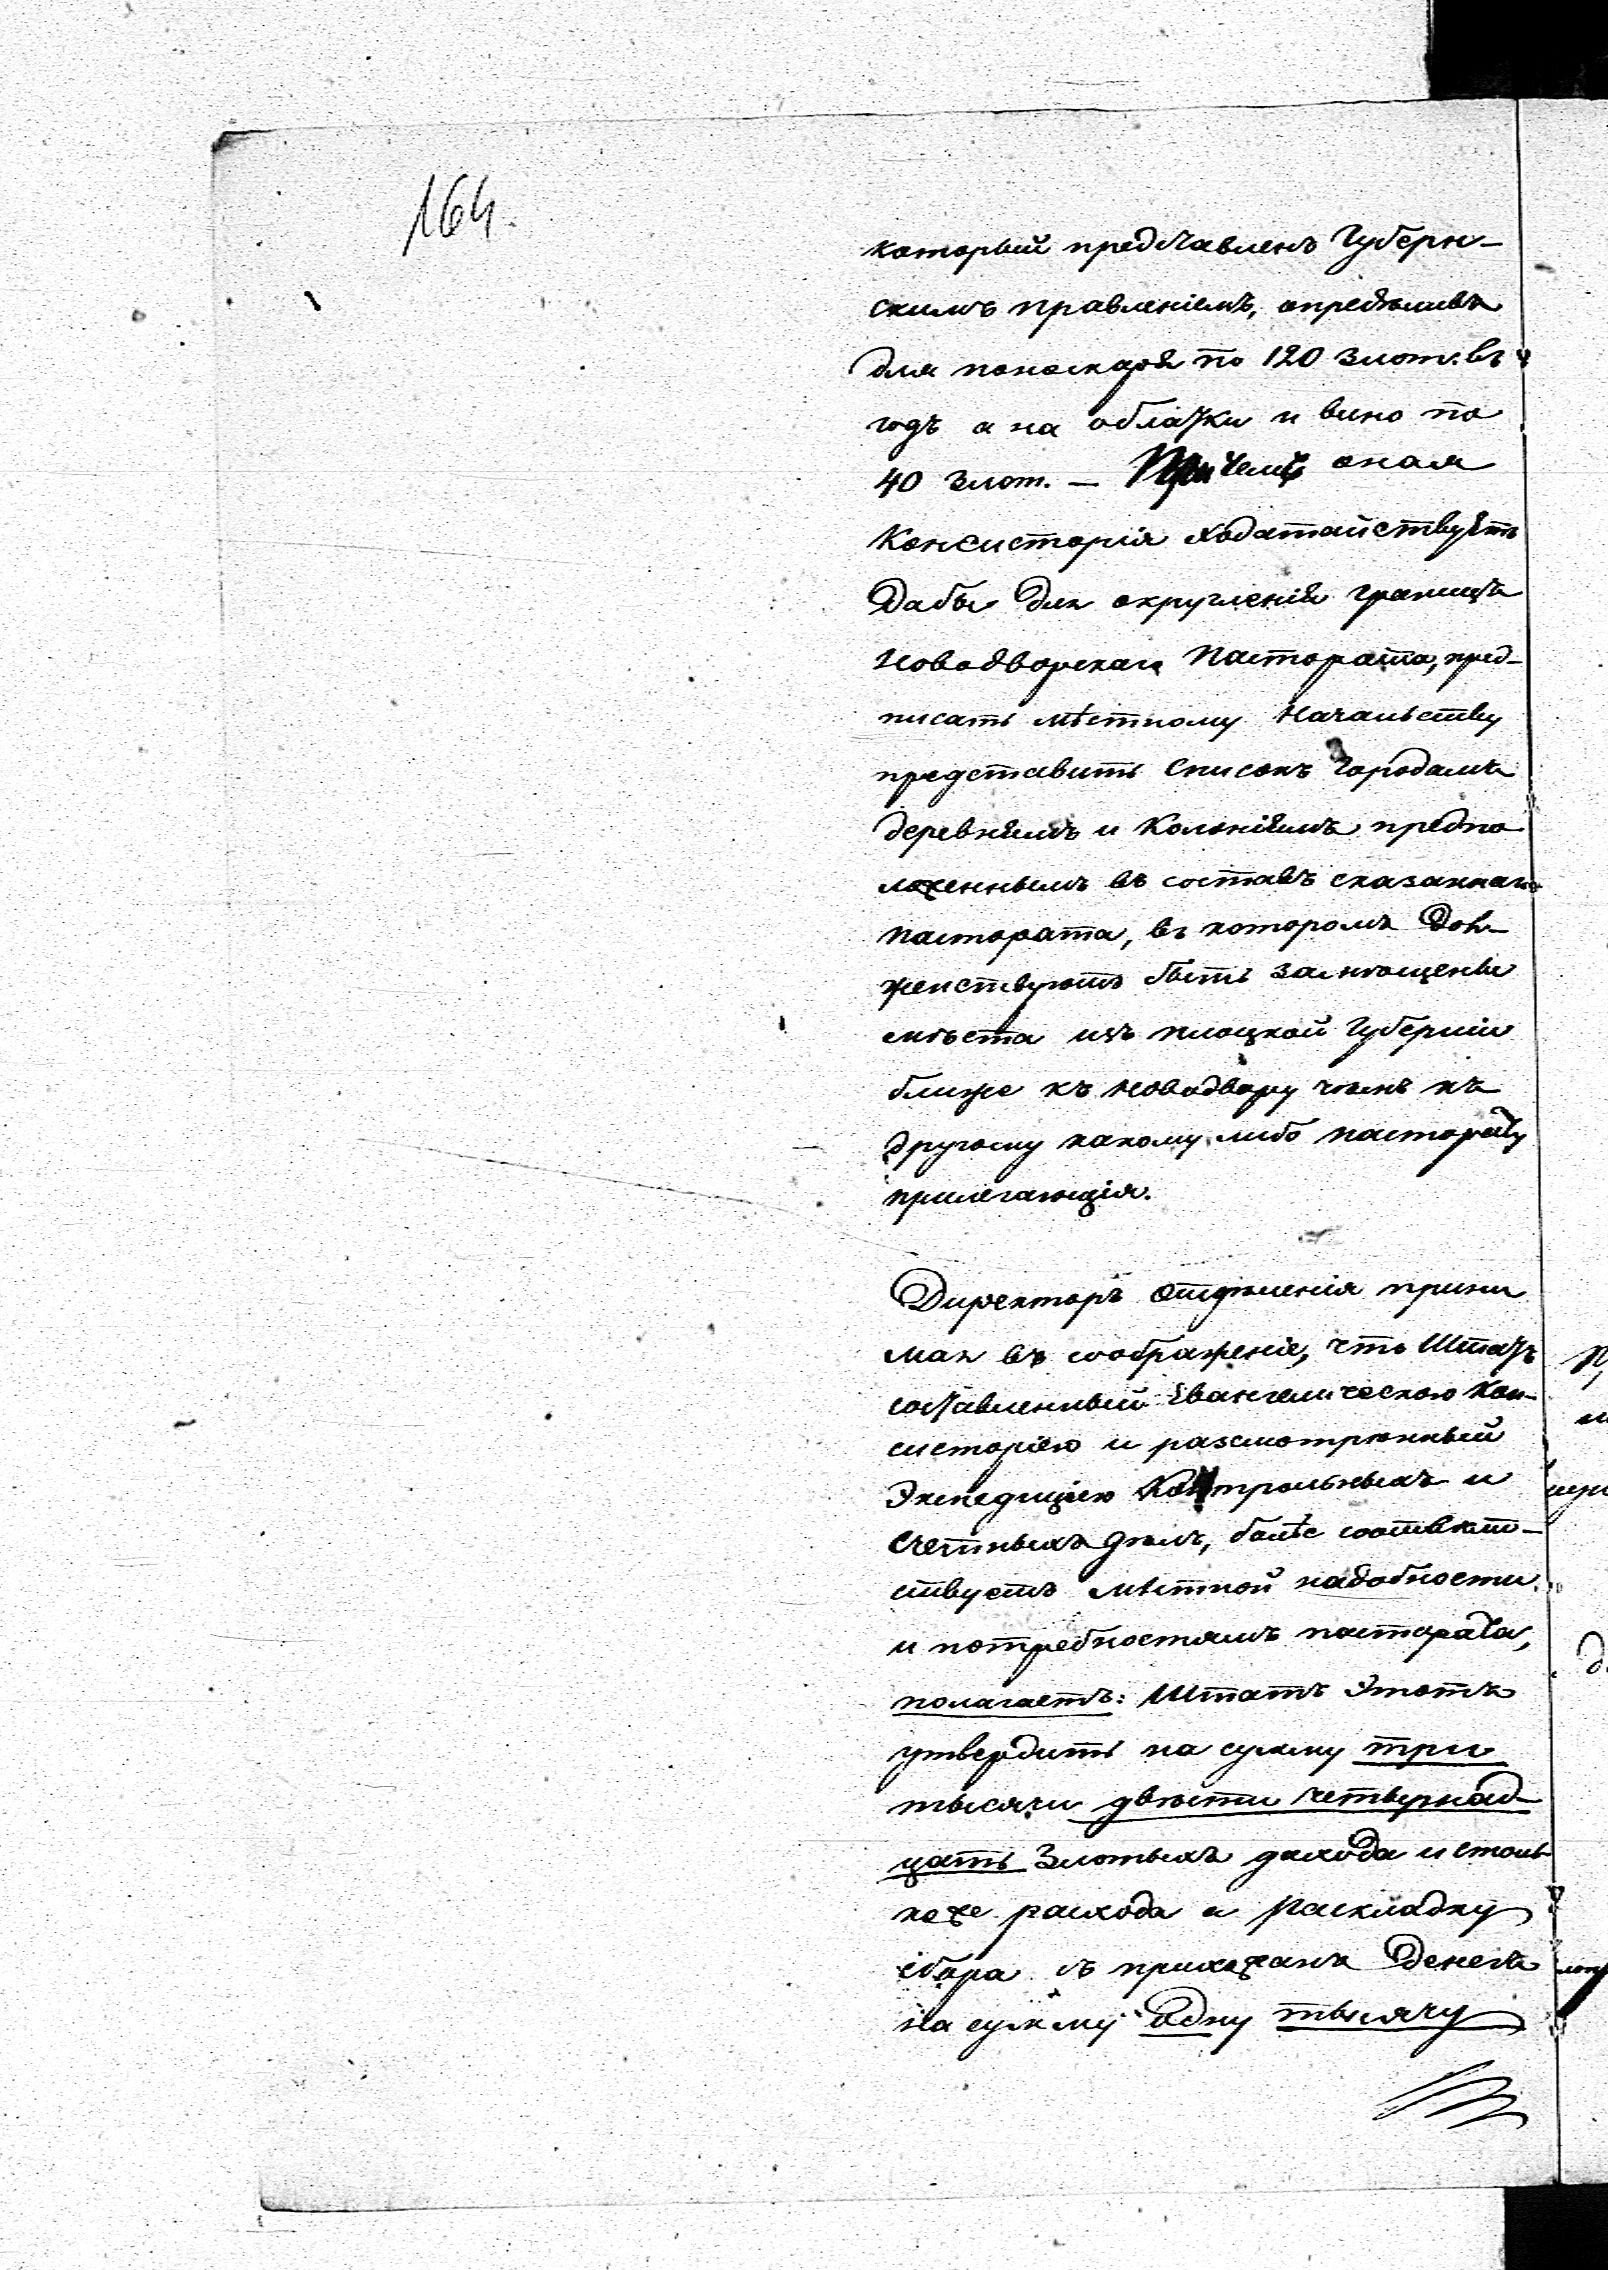 164.
который представленъ Губерн-
скимъ правленіемъ, опредѣливъ
для по 120 злот. въ
годъ а на облатки и вино по
40 злот. — При чемъ оная
Консисторія ходатайствуетъ
Дабы для округленія границъ
Новодворскаго Пастората, пред-
писать мѣстному Начальству
представить списокъ Городамъ
деревнямъ и Колоніямъ предпо
ложеннымъ въ составъ сказаннаго
пастората, въ которомъ Дол-
женствуютъ быть заключены
мѣста изъ плоцкой Губерніи
ближе къ Новодвору чѣмъ къ
другому какому либо пасторату
прилегающія.
Директоръ отдѣленія прини
мая въ соображеніе, что Штатъ
составленный Евангелическою Кон-
систоріею и разсмотрѣнный
Экспедиціею Контрольныхъ и
счетныхъ дѣлъ, болѣе соотвѣт-
ствуетъ мѣстной надобности
и потребностямъ пастората,
полагаетъ: Штатъ Этотъ
утвердить на сумму три
тысячи двѣсти четырнад-
цать Злотыхъ дохода и столь
коже расхода а Раскладку
сбора съ прихожанъ Денегъ
на сумму Одну тысячу